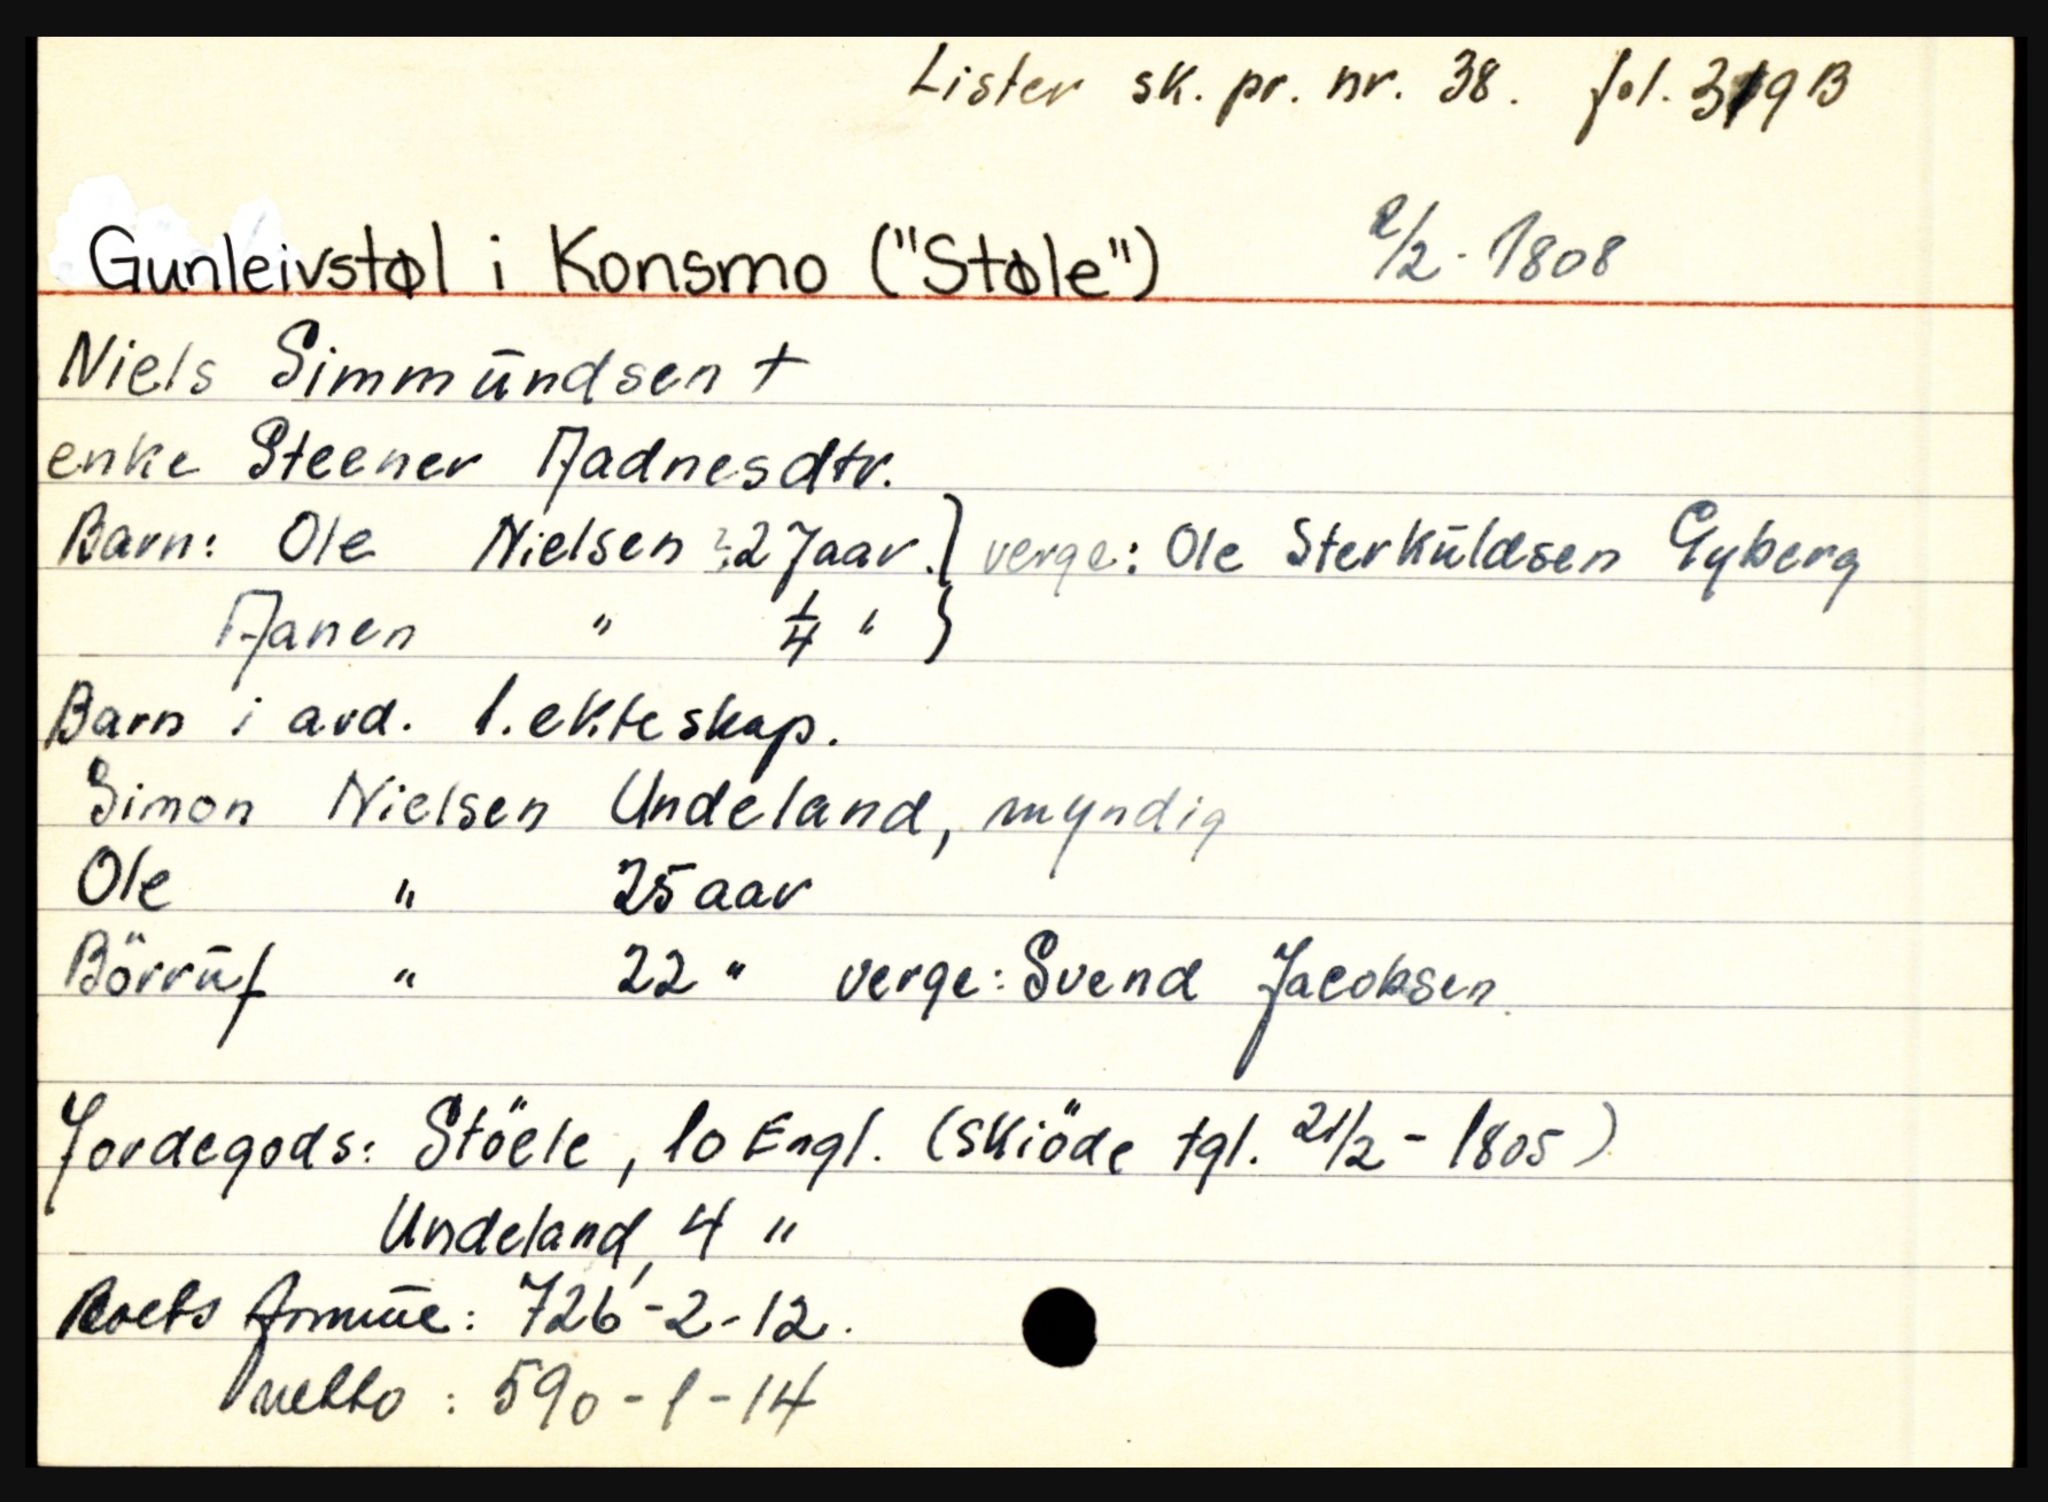 Lister sk. pr. nr. 38. fol. 319B
Gunleivstøl i Konsmo ("Støle") 2/2 - 1808
Niels Simmūndsen +
enke Steener Aadnesdtr.
Barn: Ole Nielsen 27aar. } verge: Ole Sterkūldsen Eyberg
Aanen " 1/4 " }
Barn i avd. 1. ekteskap.
Simon Nielsen Undeland, myndig
Ole " 25 aar
Börrūf " 22 " verge: Svend Jacobsen.
Jordegods: Stöele, 10 Engl. (skiöde tgl. 21/2 - 1805)
Undeland, 4 "
Boets formūe: 726 - 2 - 12.
netto: 590 - 1 - 14